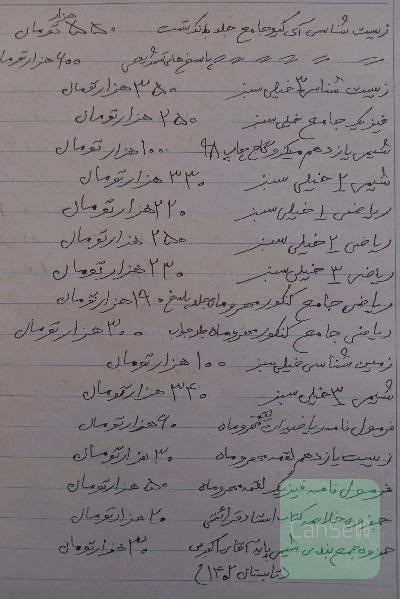 زیست شناسی آی کیو جامع جلد ۱ ۵۵۰ هزار تومان
〃 〃 〃 〃 〃 ۶۰۰ هزار تومان
زیست شناسی ۳ خیلی سبز ۳۵۰ هزار تومان
فیزیک جامع خیلی سبز ۲۵۰ هزار تومان
شیمی یازدهم میکرو گاج چاپ ۹۸ ۱۰۰ هزار تومان
شیمی ۱ خیلی سبز ۳۳۰ هزار تومان
ریاضی ۱ خیلی سبز ۲۲۰ هزار تومان
ریاضی ۲ خیلی سبز ۲۵۰ هزار تومان
ریاضی ۳ خیلی سبز ۲۳۰ هزار تومان
ریاضی جامع کنکور مهروماه جلد پاسخ ۱۹۰ هزار تومان
ریاضی جامع کنکور مهروماه جلد ۳۰۰ هزار تومان
زمین شناسی خیلی سبز ۱۰۰ هزار تومان
شیمی ۳ خیلی سبز ۳۴۰ هزار تومان
فرمول نامه ریاضیات لقمه مهروماه ۶۰ هزار تومان
زیست یازدهم لقمه مهروماه ۳۰ هزار تومان
فرمول نامه فیزیک لقمه مهروماه ۵۰ هزار تومان
جزوه خلاصه کتاب استاد قرائتی ۲۰ هزار تومان
جزوه جمع بندی شیمی پایه آقای ۳۰ هزار تومان
(تابستان ۱۴۰۲)
CanSell